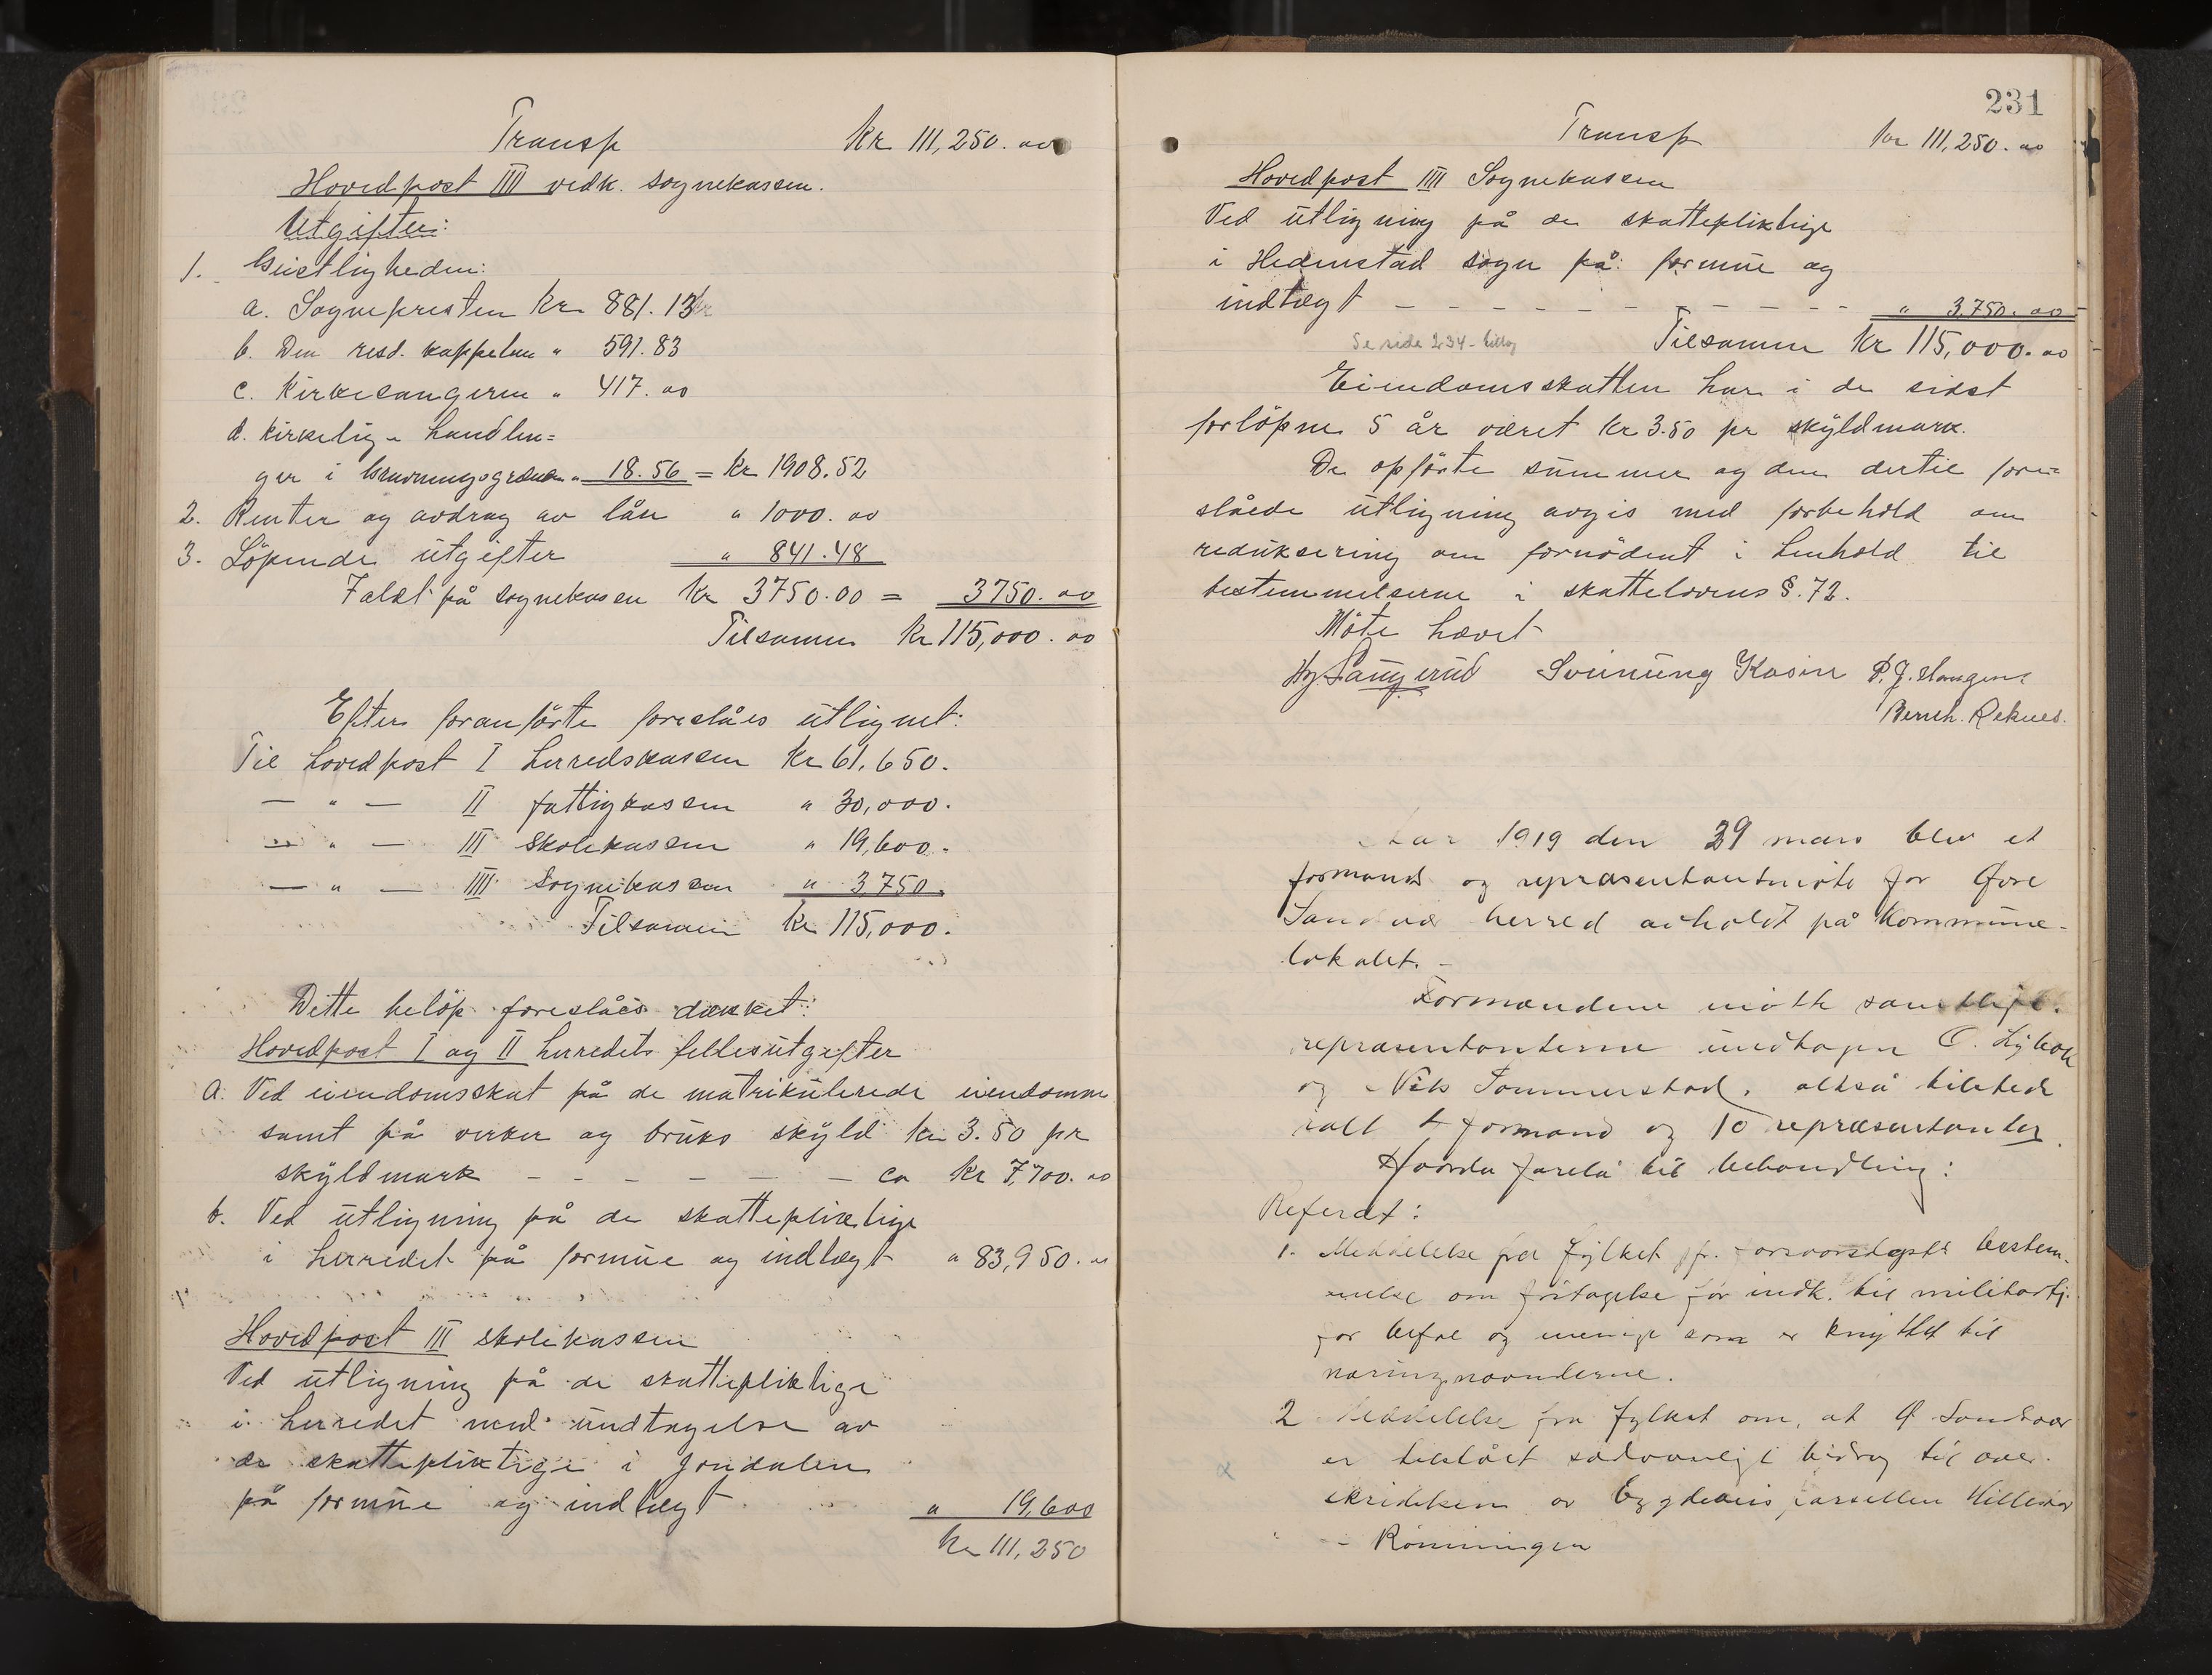 Transp Kr. 111,250.00
Hovedpost IIII vedk. Sognekassen.
Utgifter:
1. Geistligheden:
a. Sognepresten Kr. 881.13
b. Den resd. kappelan " 591.83
c. Kirkesangeren " 417.00
d. Kirkelige handlin=
ger i " 18.56 = Kr 1908.52
2. Renter og avdrag av lån " 1000.00
3. Löpende utgifter " 841.48
Ialdt på sognekassen Kr 3750.00 = 3750.00
Tilsammen Kr 115,000.00
Efter foranförte foreslåes utlignet:
Til hovedpost I herredskassen Kr 61,650.
— " — II fattigkassen " 30,000.
— " — III Skolekassen " 19,600.
— " — IIII Sognekassen " 3,750.
Tilsammen Kr 115,000.
Dette belöp foreslåes dækket:
Hovedpost I og II herredets fellesutgifter
a. Ved eiendomsskat på de matrikulerede eiendomme
samt på verker og bruks skyld kr 3.50 pr
skyldmark - - - - - - ca Kr 7,700.00
b. Ved utligning på de skattepliktige
i herredet på formue og indtægt " 83,950.00
Hovedpost III skolekassen
Ved utligning på de skattepliktige
i herredet med undtagelse av
de skattepliktige i Jondalen
på formue og indtægt " 19,600
Kr 111,250
231
Transp kr 111,250.00
Hovedpost IIII Sognekassen
Ved utligning på de skattepliktige
i Hedenstad sogn på formue og
indtægt - - - - - - - - - - - " 3,750.00
Se side 234 - tillæg Tilsammen Kr 115,000.00
Eiendomsskatten har i de sidst
forlöpne 5 år været Kr 3.50 pr skyldmark.
De opförte summer og den dertil fore=
slåede utligning avgis med forbehold om
reduksering om fornödent i henhold til
bestemmelserne i skattelovens §. 72.
Möte hævet
Hg. Langerud Svenung Kasin P.J.
Bernh. Reknes.
Aar 1919 den 29 mars blev et
formands og repræsentantmöte for Øvre
Sandsvær herred avholdt på Kommune-
lokalet. -
Formændene mötte samtlige.
repræsentanterne undtagen O.
og Nils Sommerstad, altså tilstede
ialt formænd og 10 repræsentanter.
Hvorda forelå til behandling:
Referat:
1. Meddelelse fra fylket forsvarsdepts bestem-
melse om fritagelse for indk. til militærtj.
for befal og menige som er knyttet til
næringsnævnderne.
2 Meddelelse fra fylket om, at Ø Sandsvær
er tilstået sedvanlige bidrag til over-
skridelsen av bygdeveis parsellen
- Rönningen